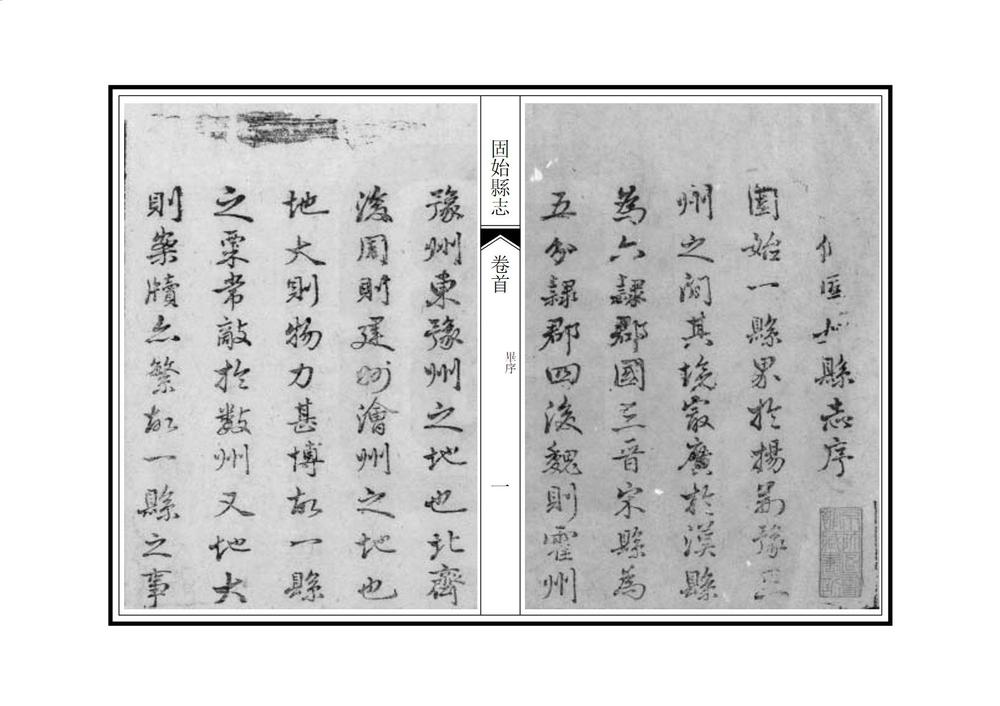 縣志序
固始一縣界於揚荊豫三
州之間其境最廣於漢縣
為六隸郡國三晉宋縣為
五分隸郡四後魏則霍州
固始縣志
卷首
畢序
一
豫州東豫州之地也北齊
後周則建州澮州之地也
地大則物力甚博故一縣
之粟常敵於數州又地大
則案牘亦繁故一縣之事